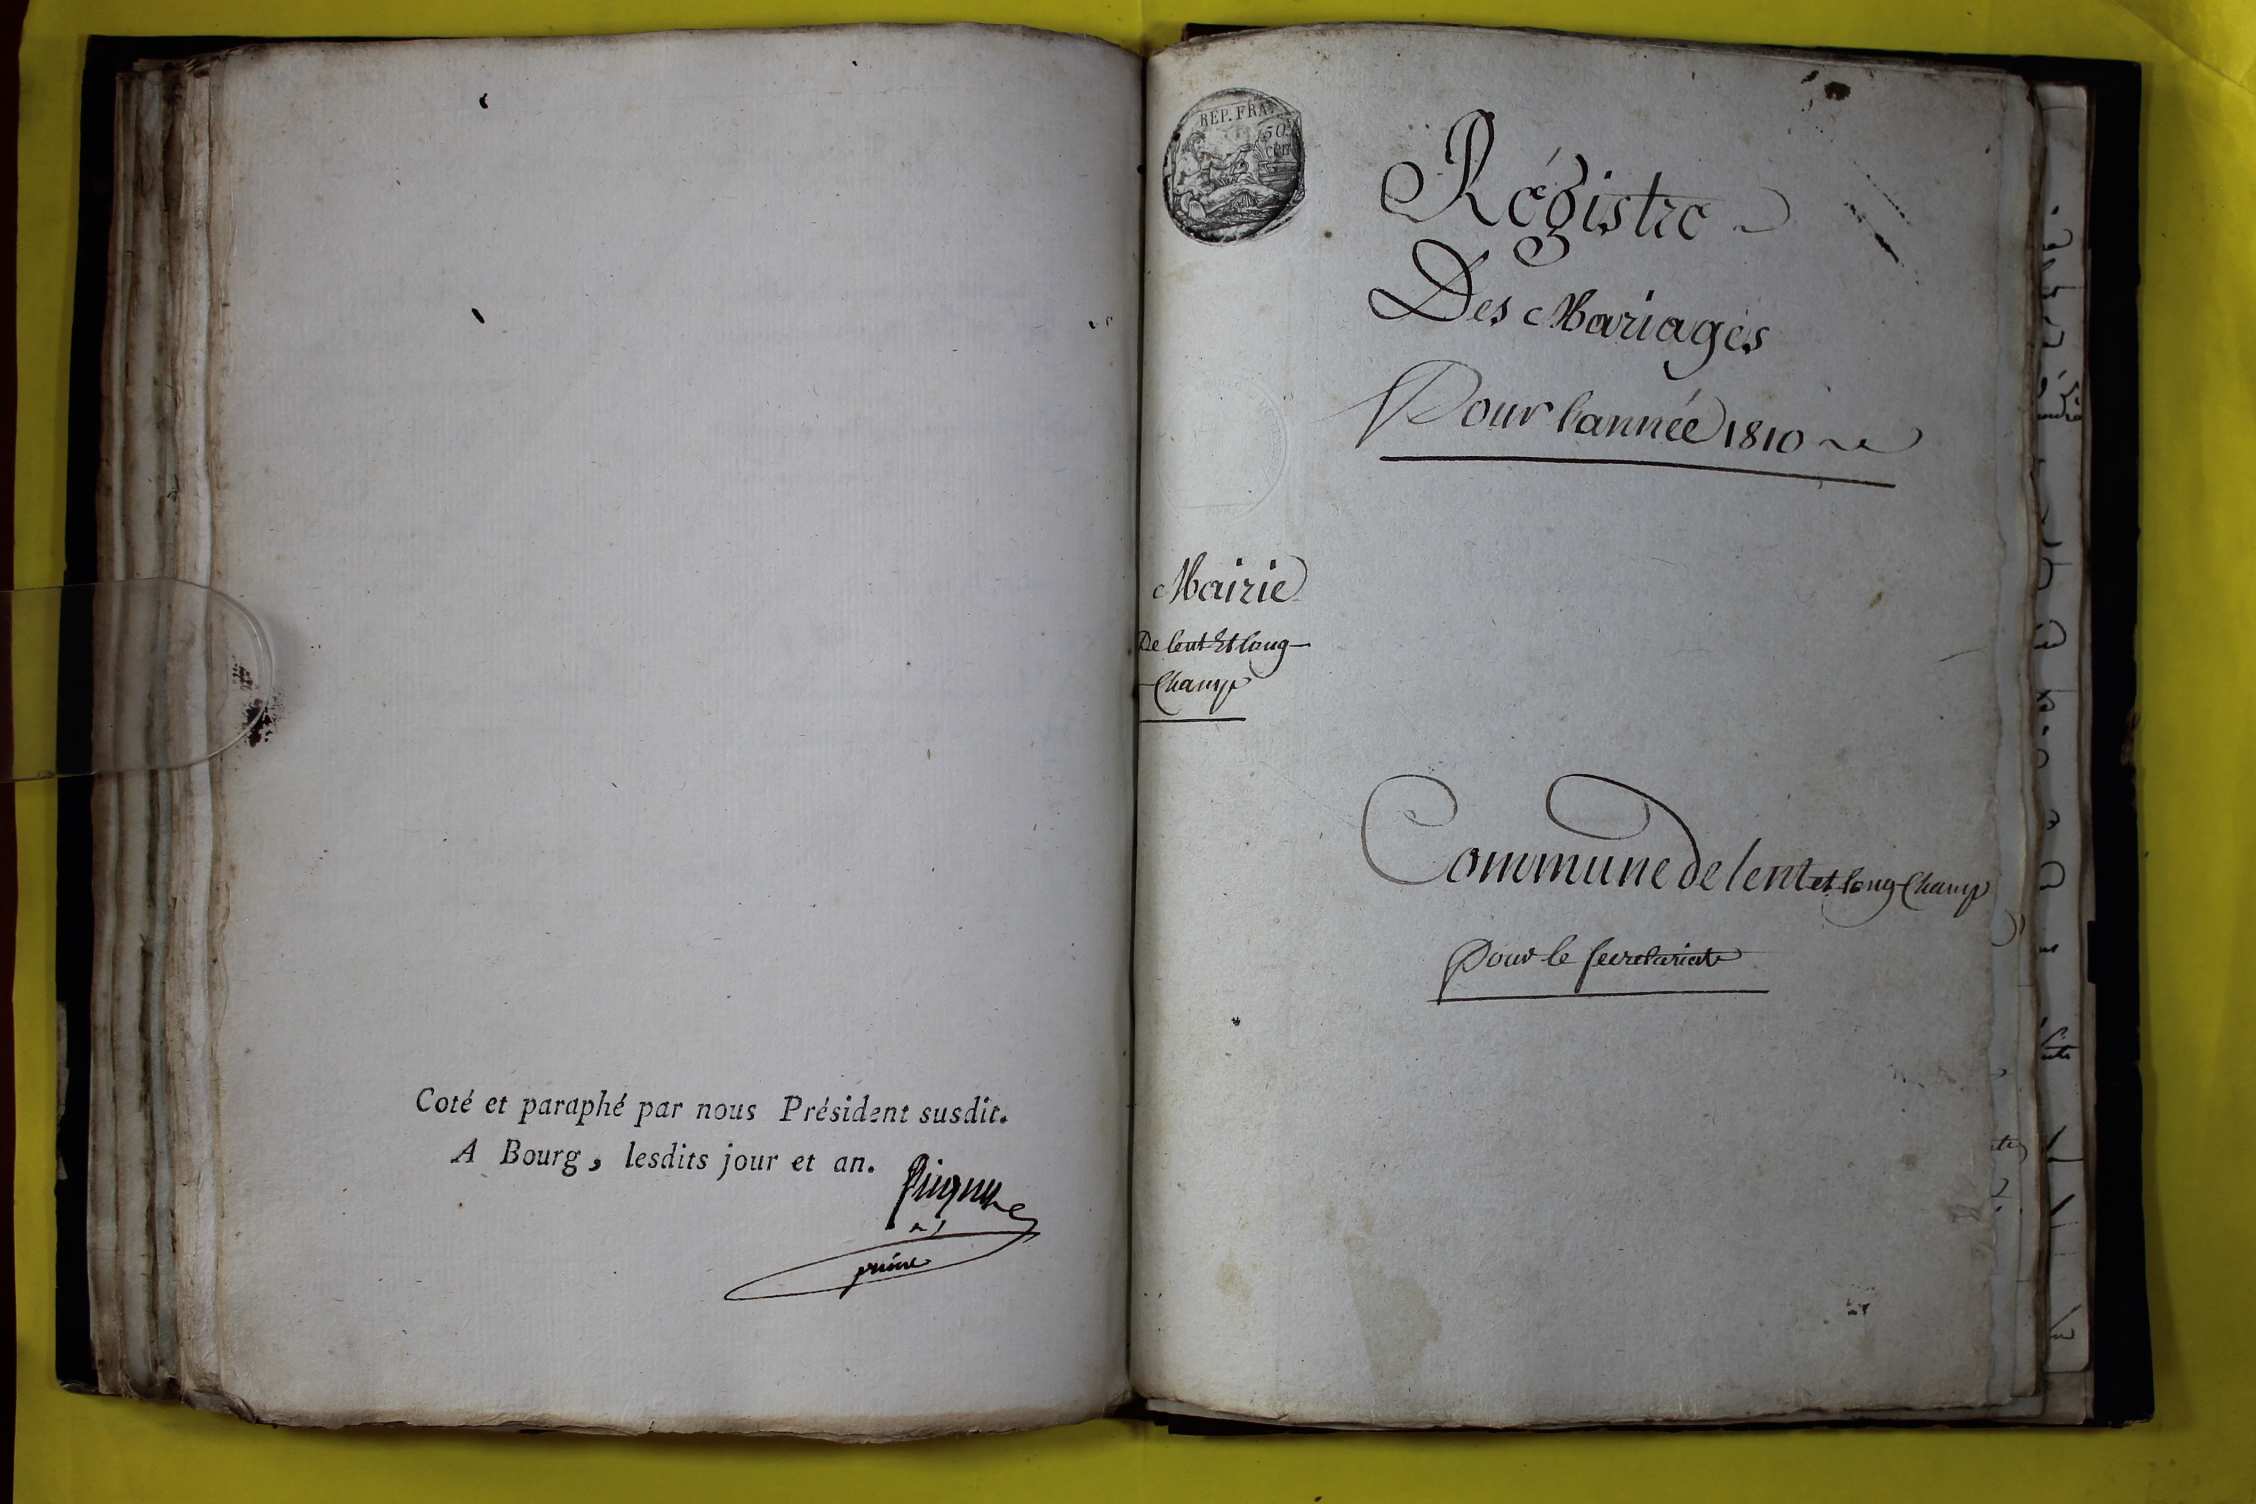 Coté et paraphé par nous Président susdit.
A Bourg, lesdits jour et an.
REP. FRA.
50
Régistre
Des Mariages
Pour l'année 1810
Mairie
De lent Et long-
Champ
Commune de lent et long-Champ
Pour le secretariat